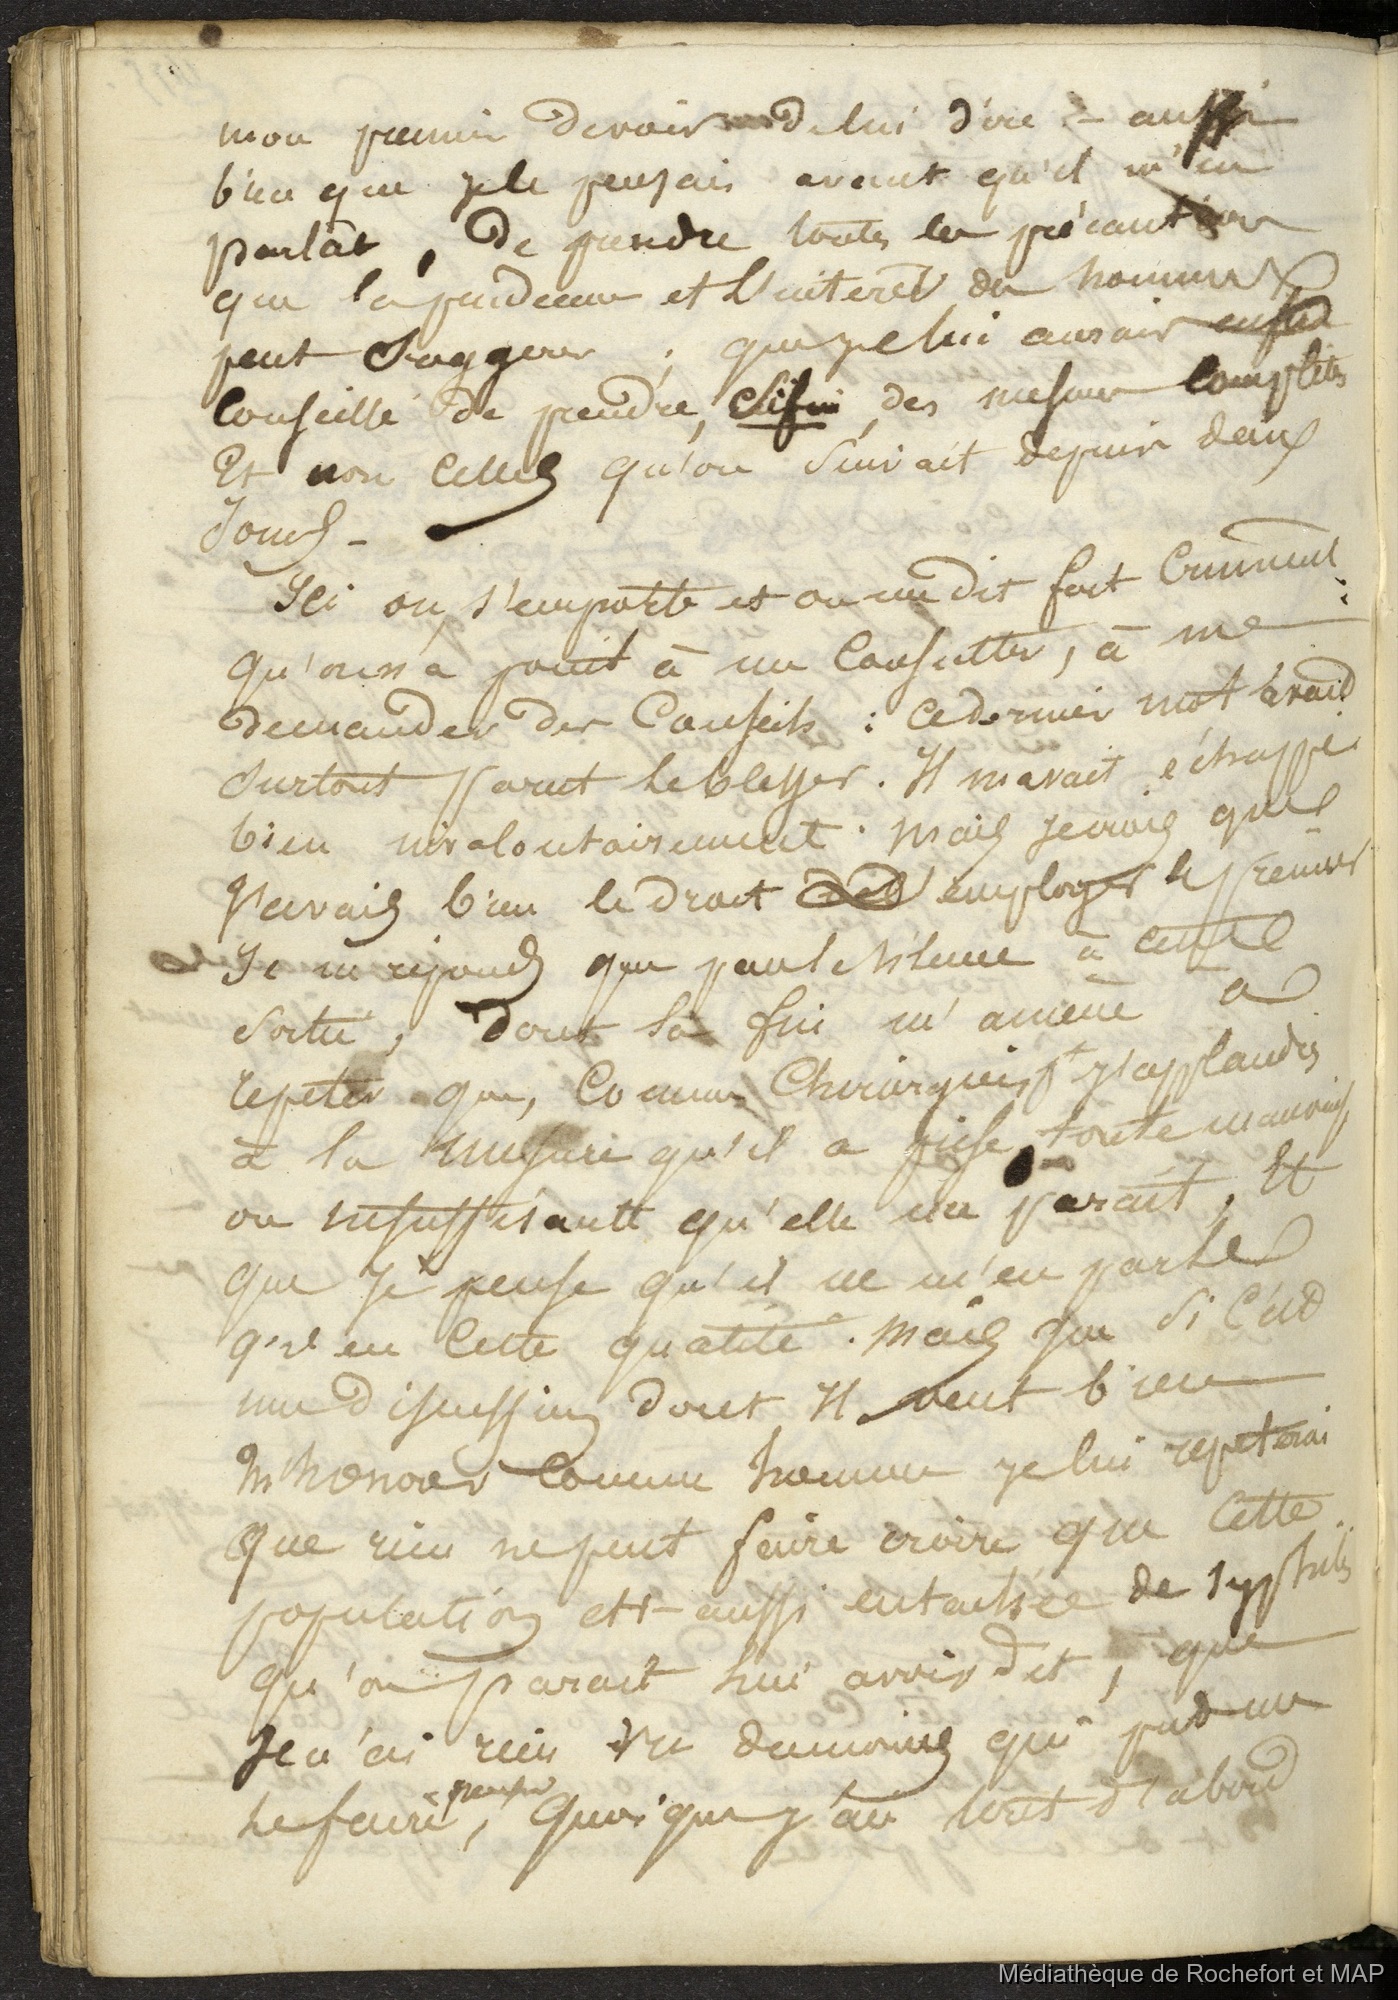 mon premier devoir de lui d'ire – aussi
bien que je le pensais avant qu'il m'en
parlât, de prendre toutes les précaution
que la pudeur et l'interêt des hommes
peut suggerer ; que je lui aurais
Conseillé de prendre, des mesures Complètes
Et non Celles qu'on suivait depuis deux
Jours –
Ici on s'emporte et on me dit fort Crument
qu'on n'a point à me Consulter, à me
demander des Conseils : ce dernier mot avait
surtout parut le blesser. Il m'avait échappé
bien involontairement. mais je crois que
j'avais bien le droit de l'employer le premier
Je ne répond que par le silence à cette
sortie, dont la fin m'amène à
repeter que, Comme Chirurgien j'applaudis
à la mesure qu'il a prise, toute mauvaise
ou insuffisante qu'elle me parait, Et
que je pense qu'il ne m'en parle
qu'en Cette qualité. mais que si C'est
une discussion dont Il veut bien
m'honorer Comme homme je lui repeterai
que rien ne peut faire croire que Cette
population est aussi entachée de syphilis
qu'on parait lui avoir dit, que
Je n'ai rien vu du moins qui put me
le faire penser, quoique j'aie tout d'abord
Médiathèque de Rochefort et MAP